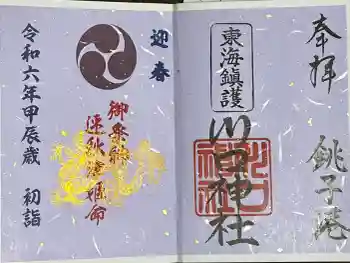 奉拝
銚子港
東海鎮護
川口神社
迎春
御祭神
速秋津姫命
令和六年甲辰歳 初詣